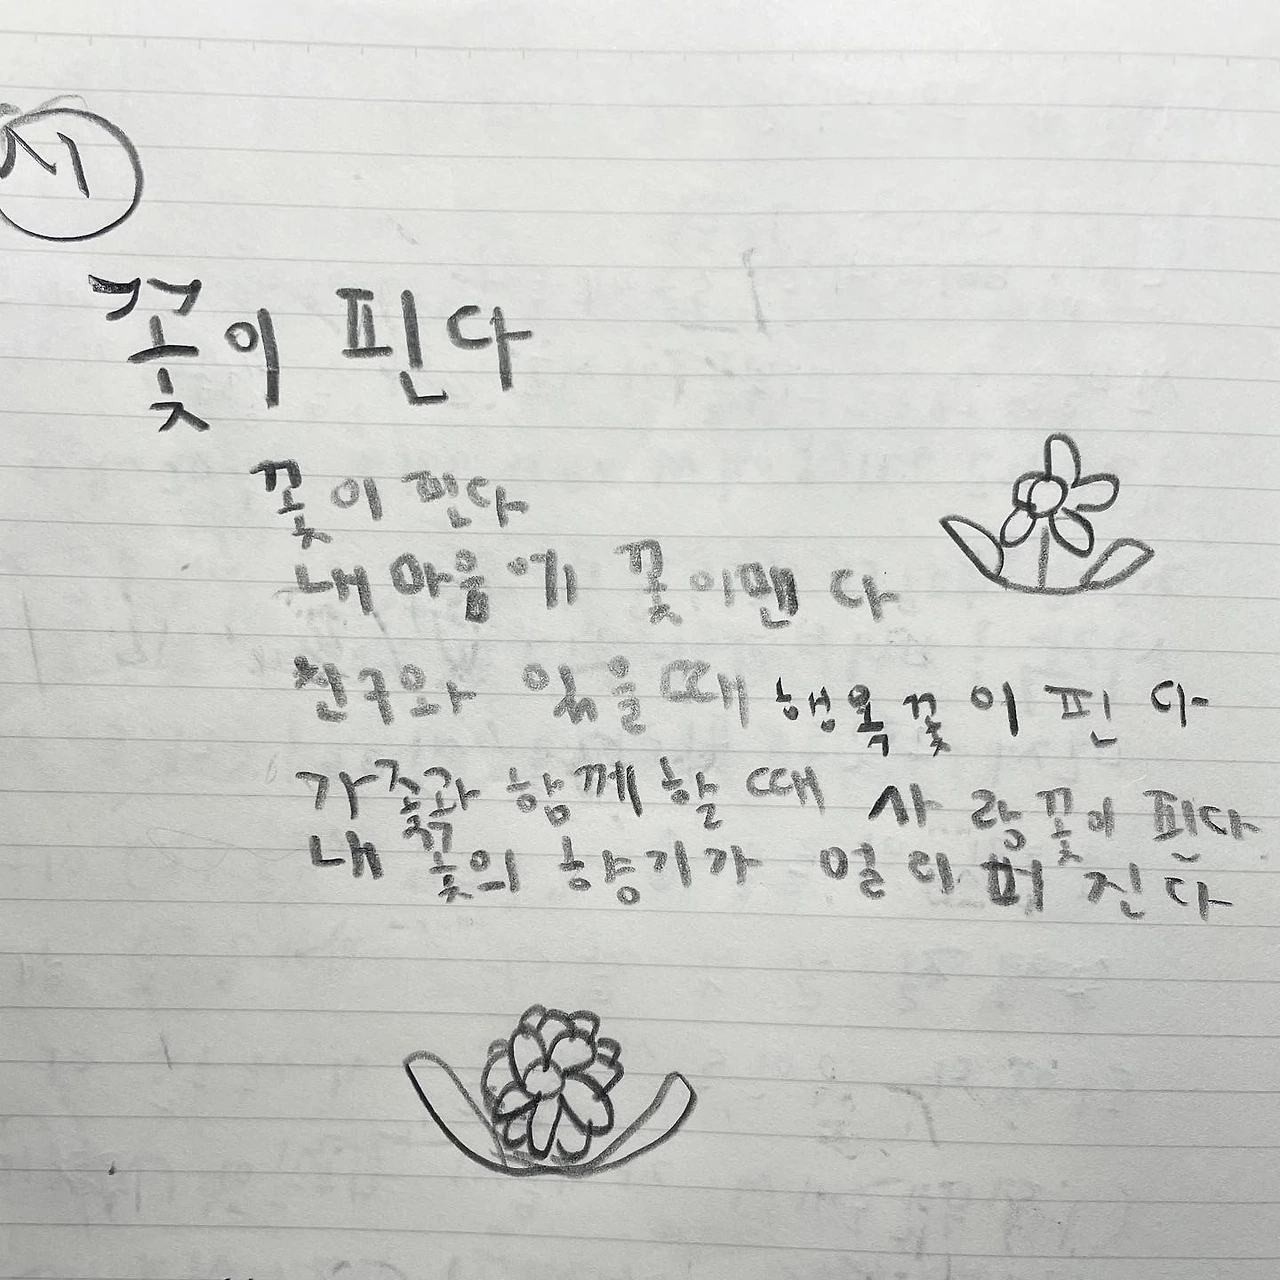 시
꽃이 핀다
꽃이 핀다
내 마음에 꽃이 핀다
친구와 있을때 행복꽃이 핀다
가족과 함께할 때 사랑꽃이 핀다
내 꽃의 향기가 멀리 퍼진다